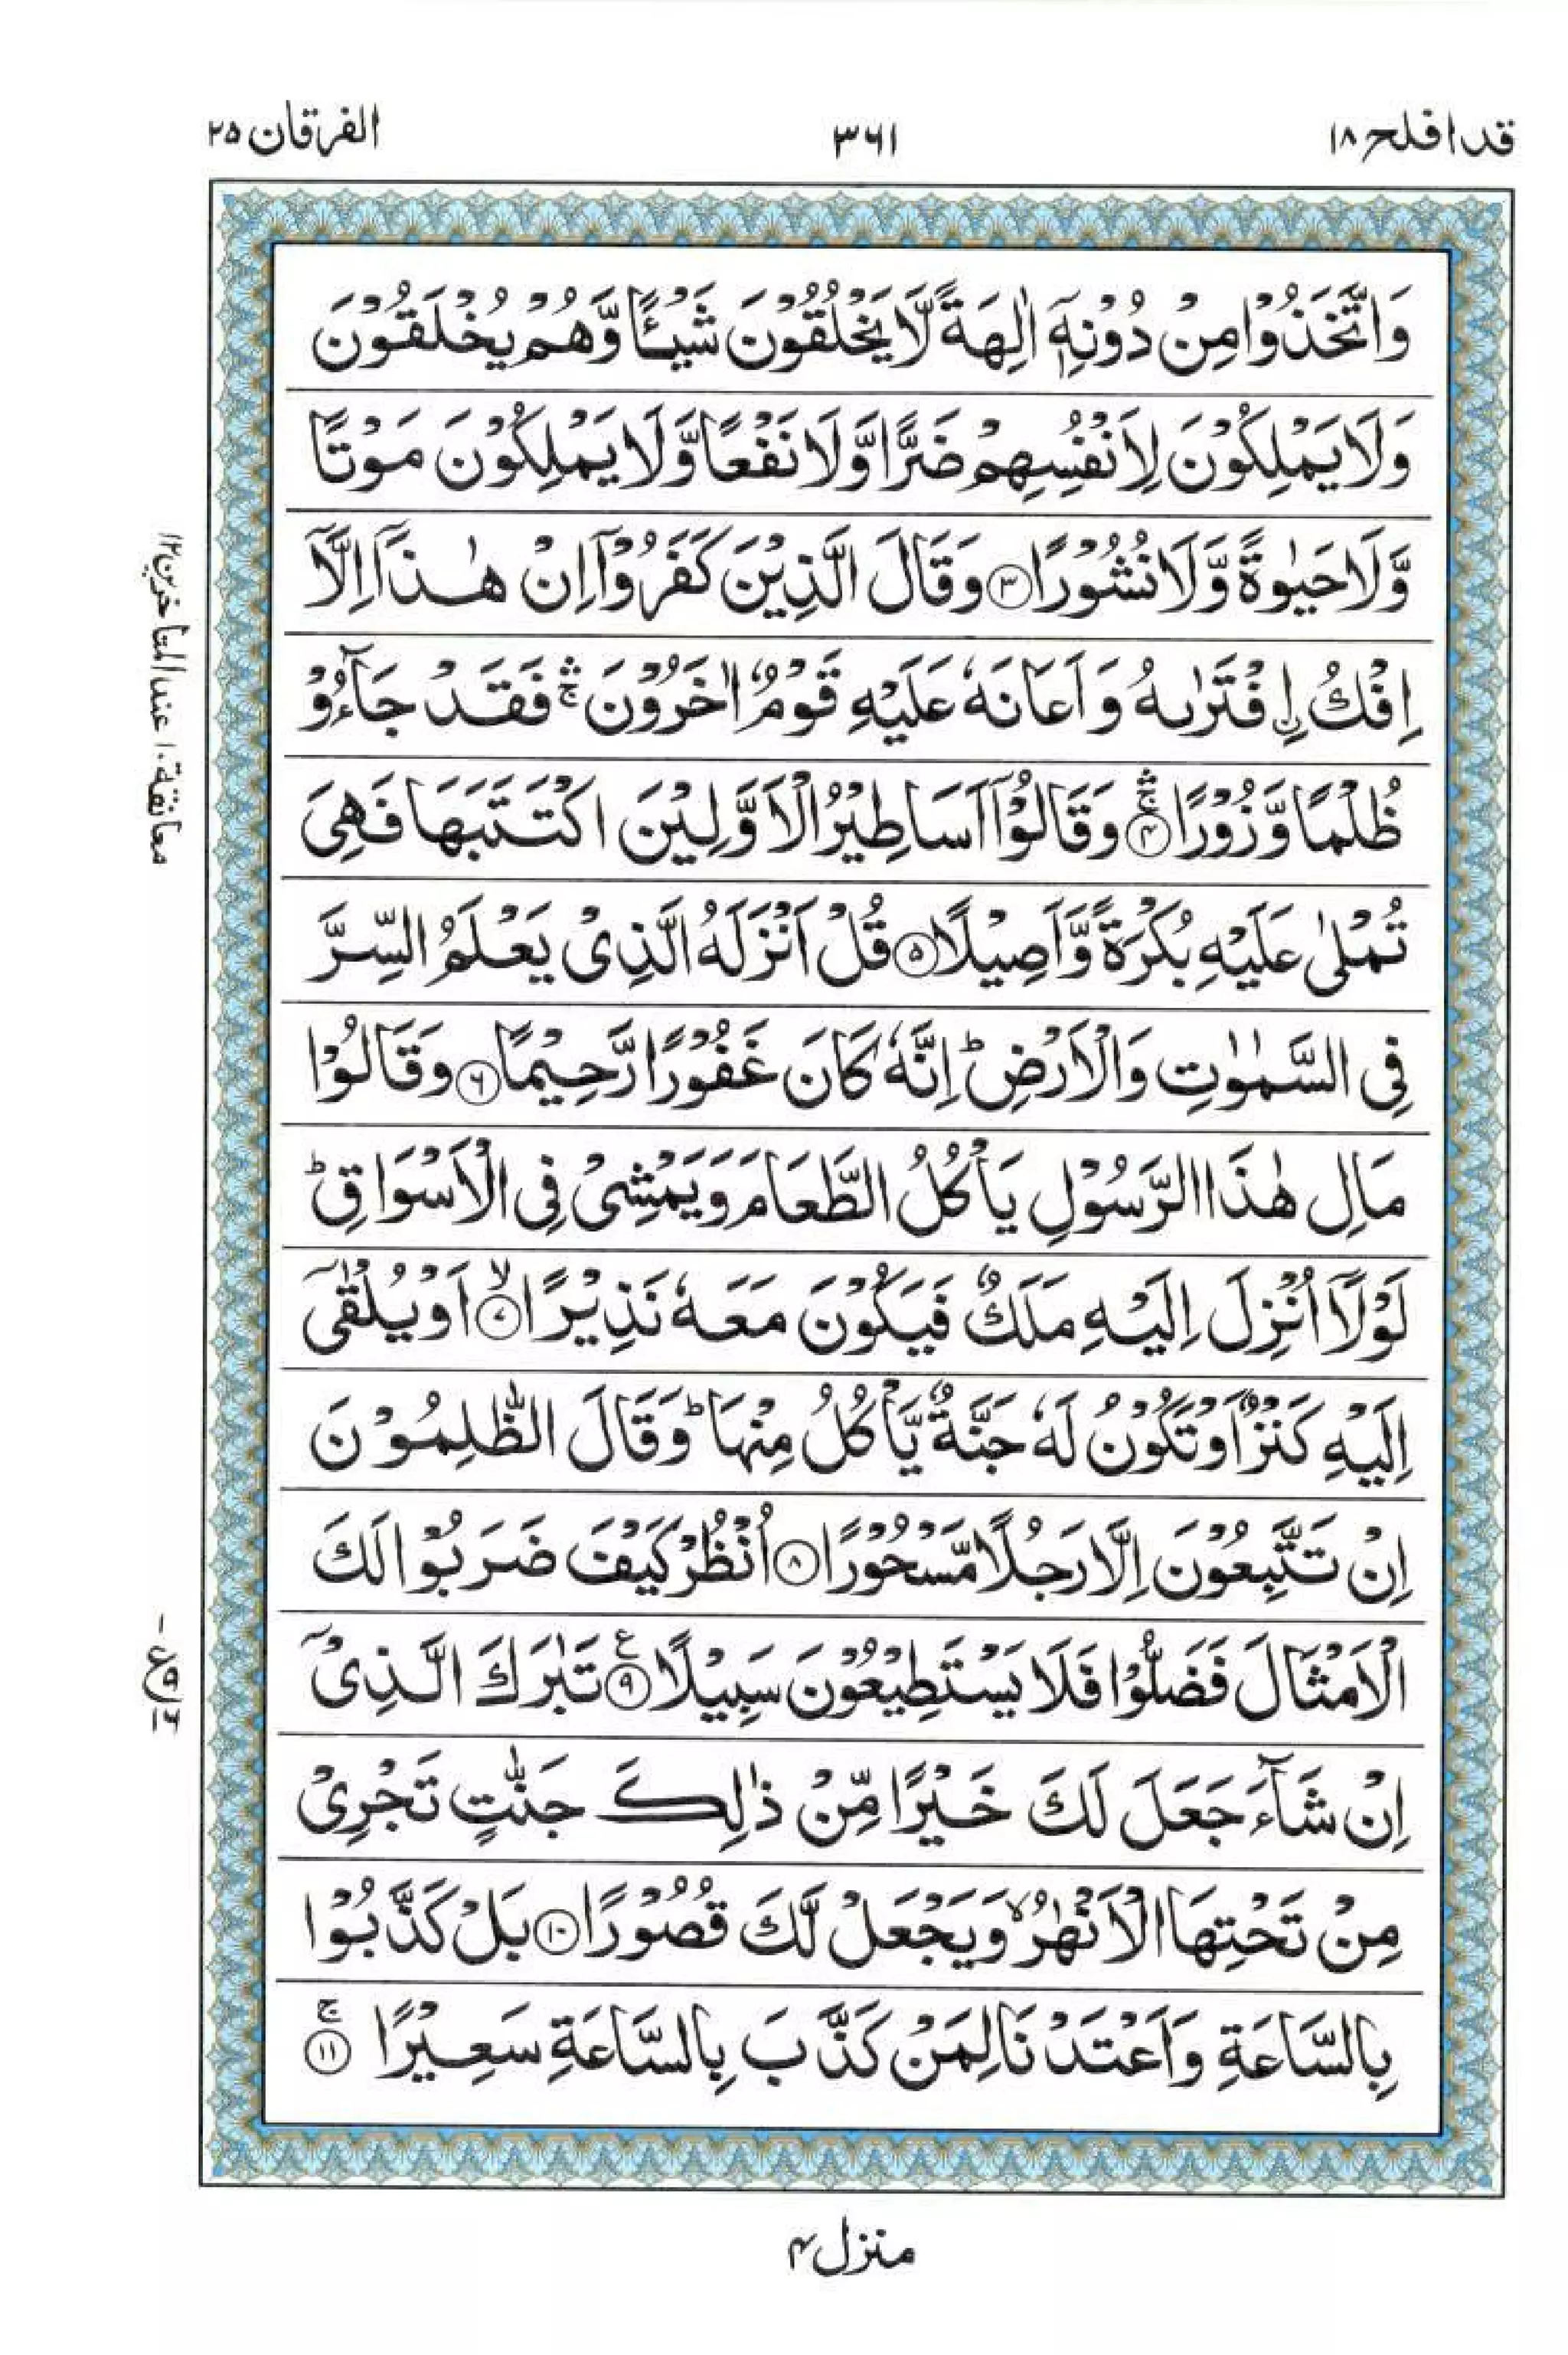 قد افلح ١٨
٣٦١
الفرقان ٢٥
وَاتَّخَذُوْا مِنْ دُوْنِهٖٓ اٰلِهَةً لَّا يَخْلُقُوْنَ شَيْـًٔا وَّهُمْ يُخْلَقُوْنَ
وَلَا يَمْلِكُوْنَ لِاَنْفُسِهِمْ ضَرًّا وَّلَا نَفْعًا وَّلَا يَمْلِكُوْنَ مَوْتًا
وَّلَا حَيٰوةً وَّلَا نُشُوْرًا ۝٣ وَقَالَ الَّذِيْنَ كَفَرُوْٓا اِنْ هٰذَآ اِلَّآ
اِفْكُ اِۨفْتَرٰىهُ وَاَعَانَهٗ عَلَيْهِ قَوْمٌ اٰخَرُوْنَ ۛۚ فَقَدْ جَآءُوْ
ظُلْمًا وَّزُوْرًا ۝٤ۛۚ وَقَالُوْٓا اَسَاطِيْرُ الْاَوَّلِيْنَ اكْتَتَبَهَا فَهِىَ
تُمْلٰى عَلَيْهِ بُكْرَةً وَّاَصِيْلًا ۝٥ قُلْ اَنْزَلَهُ الَّذِىْ يَعْلَمُ السِّرَّ
فِى السَّمٰوٰتِ وَالْاَرْضِ ؕ اِنَّهٗ كَانَ غَفُوْرًا رَّحِيْمًا ۝٦ وَقَالُوْا
مَالِ هٰذَا الرَّسُوْلِ يَاْكُلُ الطَّعَامَ وَيَمْشِىْ فِى الْاَسْوَاقِ ؕ
لَوْلَآ اُنْزِلَ اِلَيْهِ مَلَكٌ فَيَكُوْنَ مَعَهٗ نَذِيْرًا ۝٧ۙ اَوْ يُلْقٰٓى
اِلَيْهِ كَنْزٌ اَوْ تَكُوْنُ لَهٗ جَنَّةٌ يَّاْكُلُ مِنْهَا ؕ وَقَالَ الظّٰلِمُوْنَ
اِنْ تَتَّبِعُوْنَ اِلَّا رَجُلًا مَّسْحُوْرًا ۝٨ اُنْظُرْ كَيْفَ ضَرَبُوْا لَكَ
الْاَمْثَالَ فَضَلُّوْا فَلَا يَسْتَطِيْعُوْنَ سَبِيْلًا ۝٩ع تَبٰرَكَ الَّذِىْٓ
اِنْ شَآءَ جَعَلَ لَكَ خَيْرًا مِّنْ ذٰلِكَ جَنّٰتٍ تَجْرِىْ
مِنْ تَحْتِهَا الْاَنْهٰرُ ۙ وَيَجْعَلْ لَّكَ قُصُوْرًا ۝١٠ بَلْ كَذَّبُوْا
بِالسَّاعَةِ وَاَعْتَدْنَا لِمَنْ كَذَّبَ بِالسَّاعَةِ سَعِيْرًا ۝١١ۚ
معانقة ١٠ عند المتاخرين ١٢
ع ٩
منزل ٤